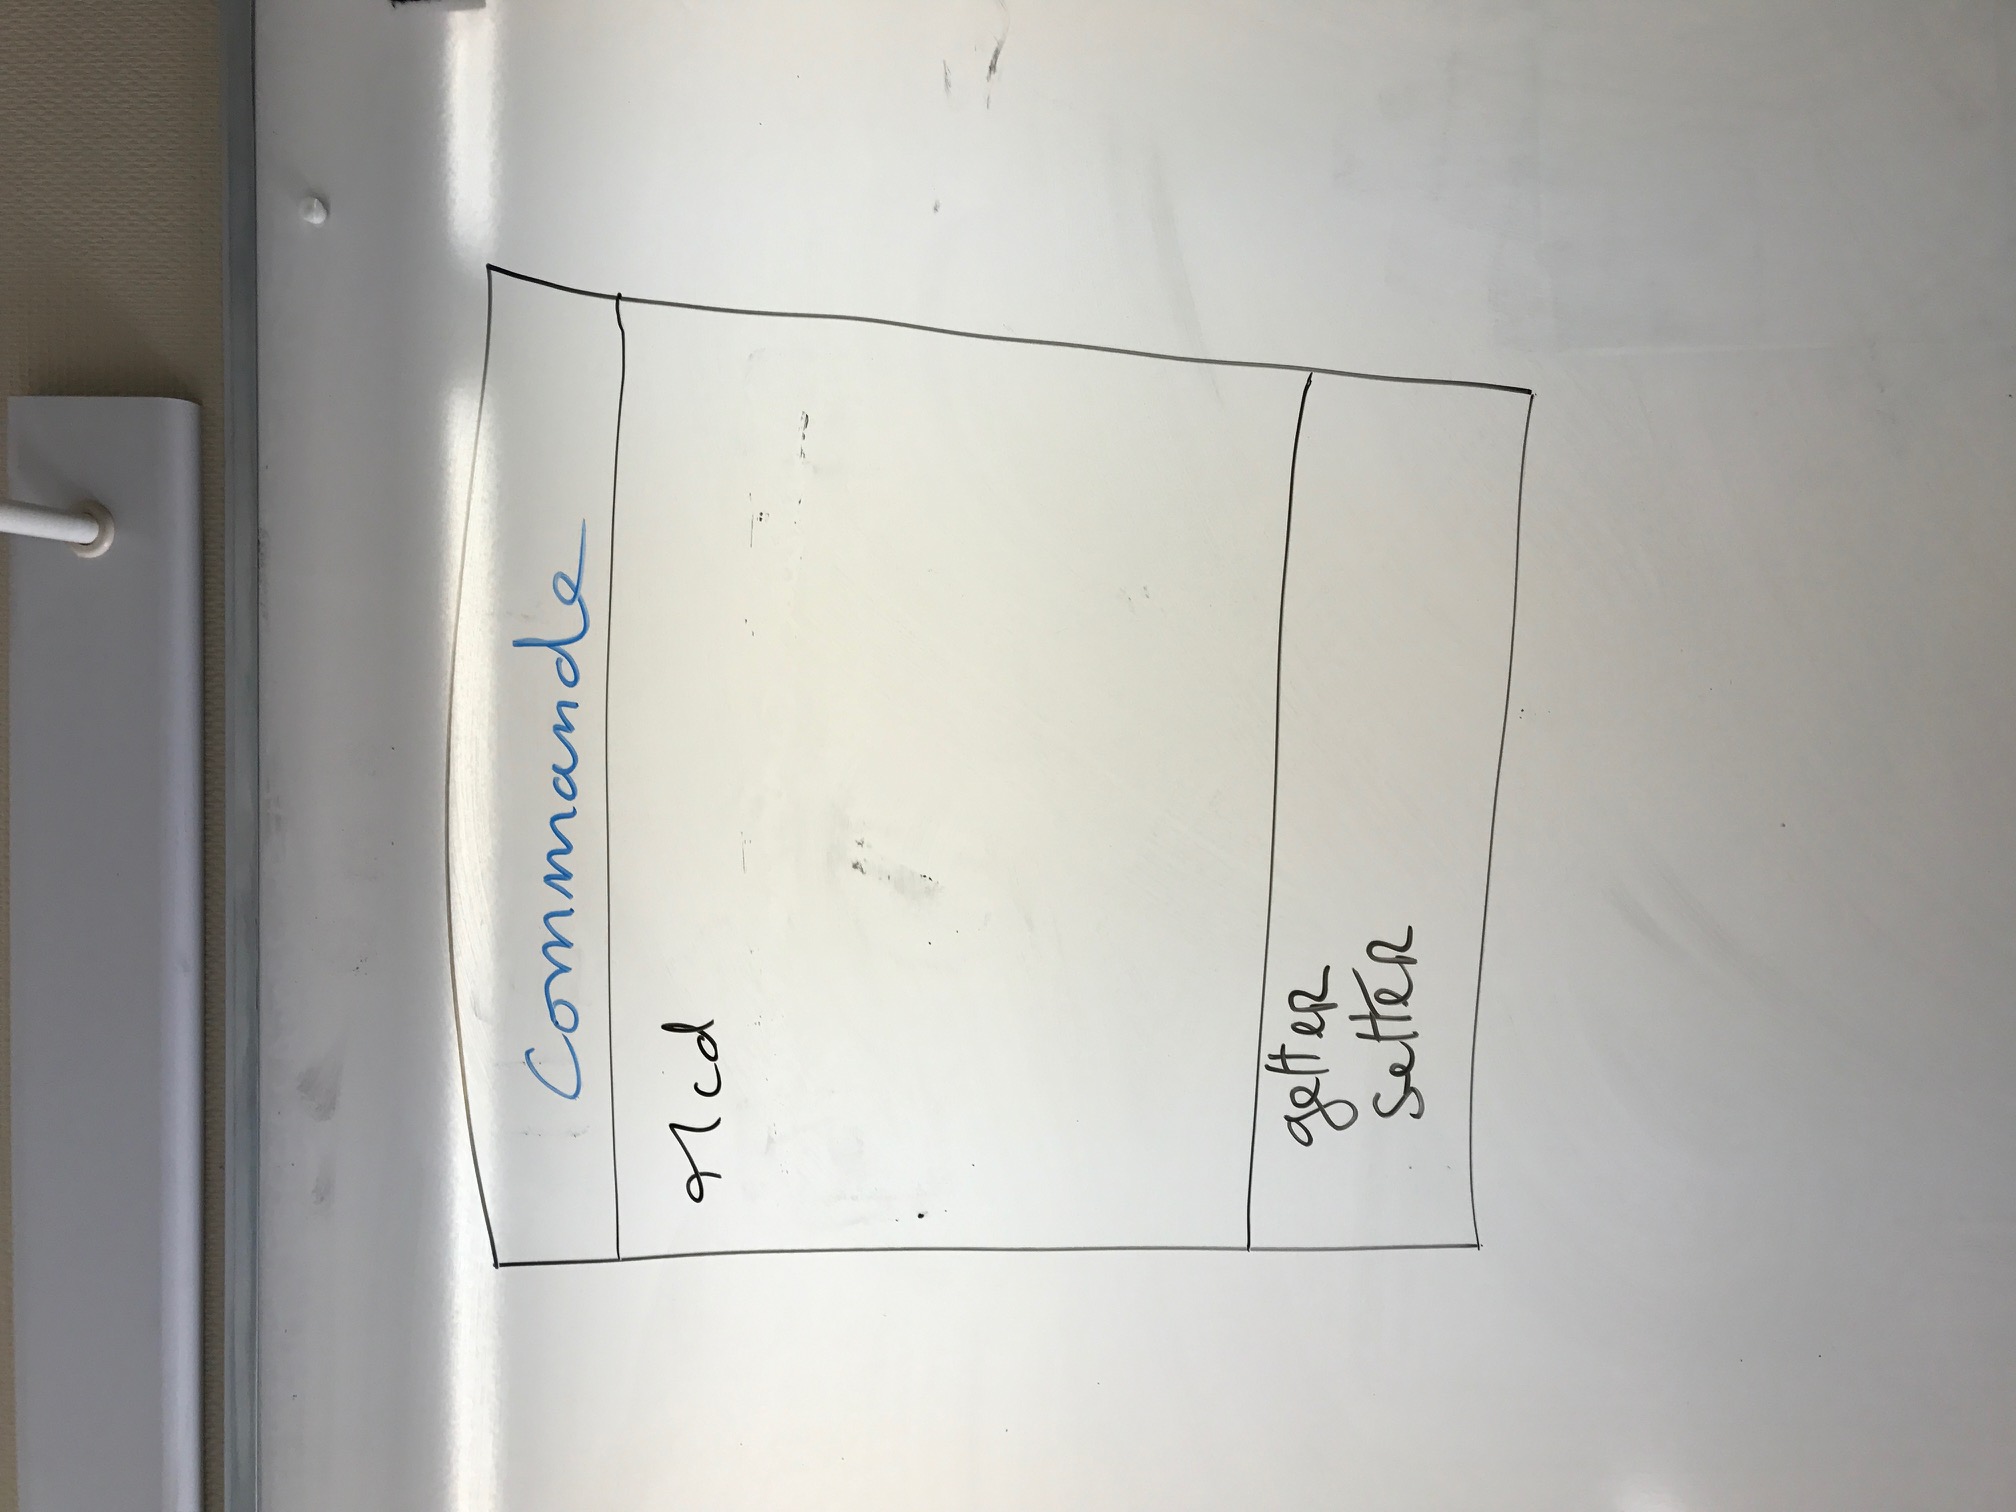 Commande
Mcd
getter
setter